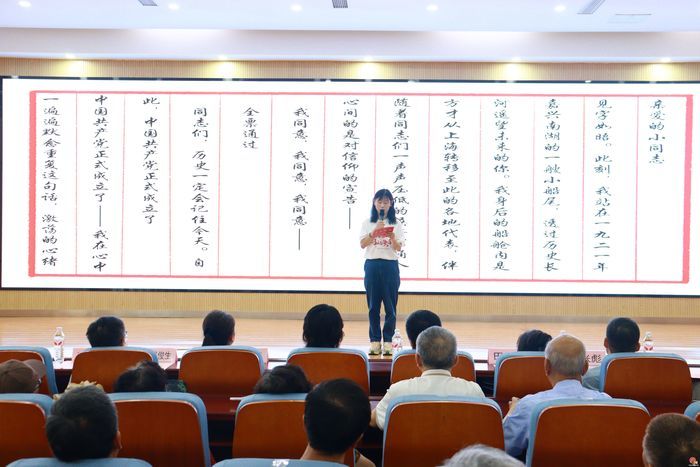 亲爱的小同志
见字如晤。此刻，我站在一九二一年
嘉兴南湖的一艘小船尾，透过历史长
河遥望未来的你。我身后的船舱内是
方才从上海转移至此的各地代表，伴
随着同志们一声声压低的
心间的是对信仰的宣告——
我同意，我同意，我同意——
全票通过
同志们，历史一定会记住今天。自
此，中国共产党正式成立了
中国共产党正式成立了——我在心中
一遍遍默念重复这句话，激荡的心绪
田
彪